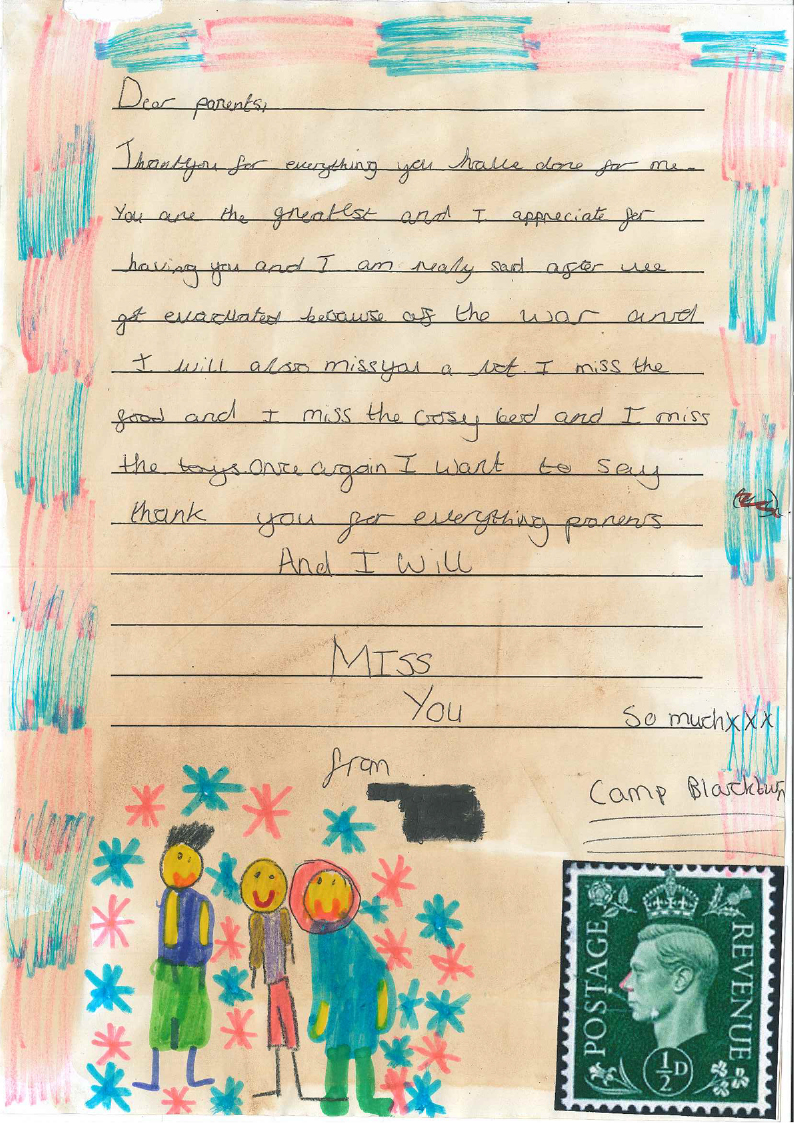 Dear parents,
Thankyou for everything you halve done for me.
You are the greatest and I appreciate for
having you and I am really sad after we
get evacuated because off the war and
I will also missyou a lot. I miss the
food and I miss the cosey bed and I miss
the toys once again I want to say
thank you for everything parents
And I Will
MISS
YOU
So much xxx
from
Camp Blackburn
POSTAGE
REVENUE
½D